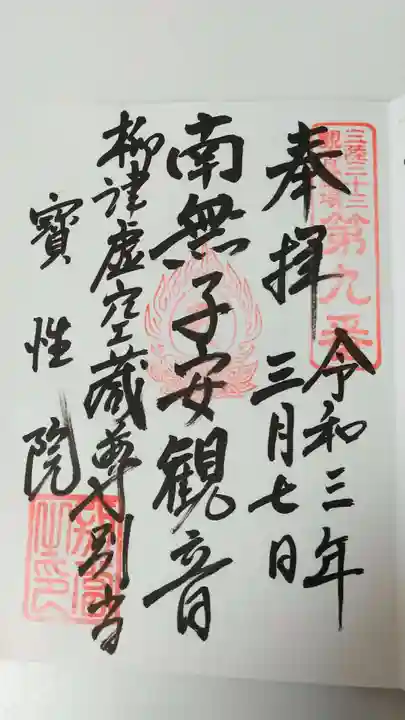 三陸三十三
観音霊場
第九番
奉拝
令和三年
三月七日
南無子安観音
柳津虚空蔵尊別当
寳性院